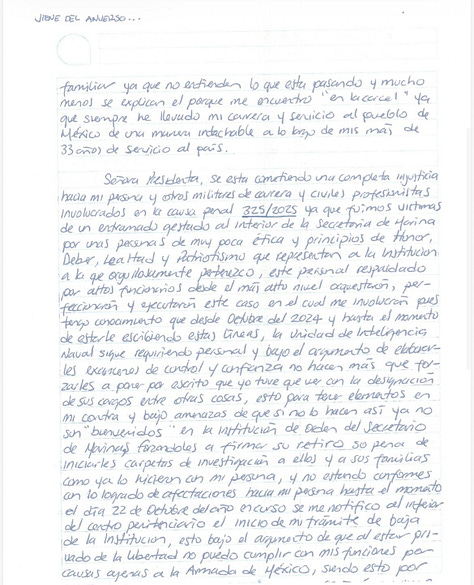 VIENE DEL ANVERSO...
familiar ya que no entienden lo que esta pasando y mucho
menos se explican el porque me encuentro "en la carcel" ya
que siempre he llevado mi carrera y servicio al pueblo de
México de una manera intachable a lo largo de mis más de
33 años de servicio al país.
Señora Presidenta, se esta cometiendo una completa injusticia
hacia mi persona y otros militares de carrera y civiles profesionistas
involucrados en la causa penal 325/2025 ya que fuimos victimas
de un entramado gestado al interior de la Secretaria de Marina
por unas personas de muy poca ética y principios de Honor,
Deber, Lealtad y Patriotismo que representan a la Institución
a la que orgullosamente pertenezco, este personal respaldado
por altos funcionarios desde el más alto nivel orquestaron, per-
feccionaron y ejecutaron este caso en el cual me involucran pues
tengo conocimiento que desde Octubre del 2024 y hasta el momento
de estarle escribiendo estas líneas, la Unidad de Inteligencia
Naval sigue requiriendo personal y bajo el argumento de elaborar-
les exámenes de control y confianza no hacen más que for-
zarles a poner por escrito que yo tuve que ver con la designación
de sus cargos entre otras cosas, esto para tener elementos en
mi contra y bajo amenazas de que si no lo hacen así ya no
son "bienvenidos" en la institución de orden del Secretario
de Marina y forzandolos a firmar su retiro so pena de
iniciarles carpetas de investigación a ellos y a sus familias
como ya lo hicieron con mi persona, y no estando conformes
con lo logrado de afectaciones hacia mi persona hasta el momento
el día 22 de Octubre del año en curso se me notifico al interior
del centro penitenciario el inicio de mi trámite de baja
de la Institucion, esto bajo el argumento de que al estar pri-
vado de la libertad no puedo cumplir con mis funciones por
causas ajenas a la Armada de México, siendo esto por